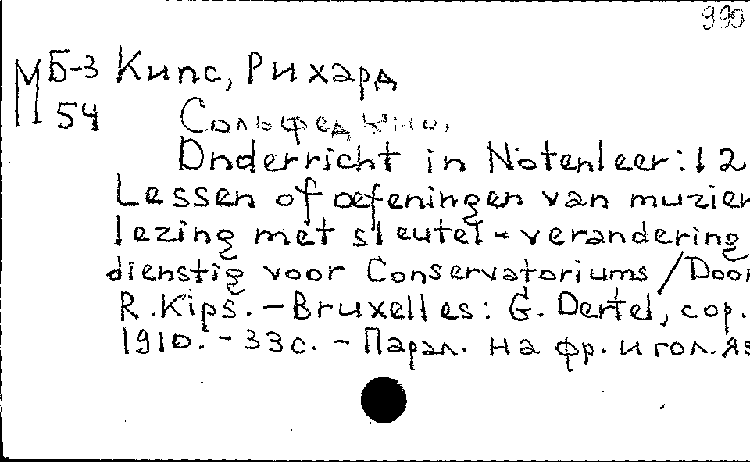 990
М Б-3 Кипс, Рихард
54 Сольфеджио.
Onderricht in Notenleer: 12
Lessen of oefeningen van muzien
lezing met sleutel-verandering
dienstig voor Conservatoriums / Door
R. Kips. - Bruxelles: G. Oertel, cop.
1910. - 33 с. - Парал. на фр. и гол. яз